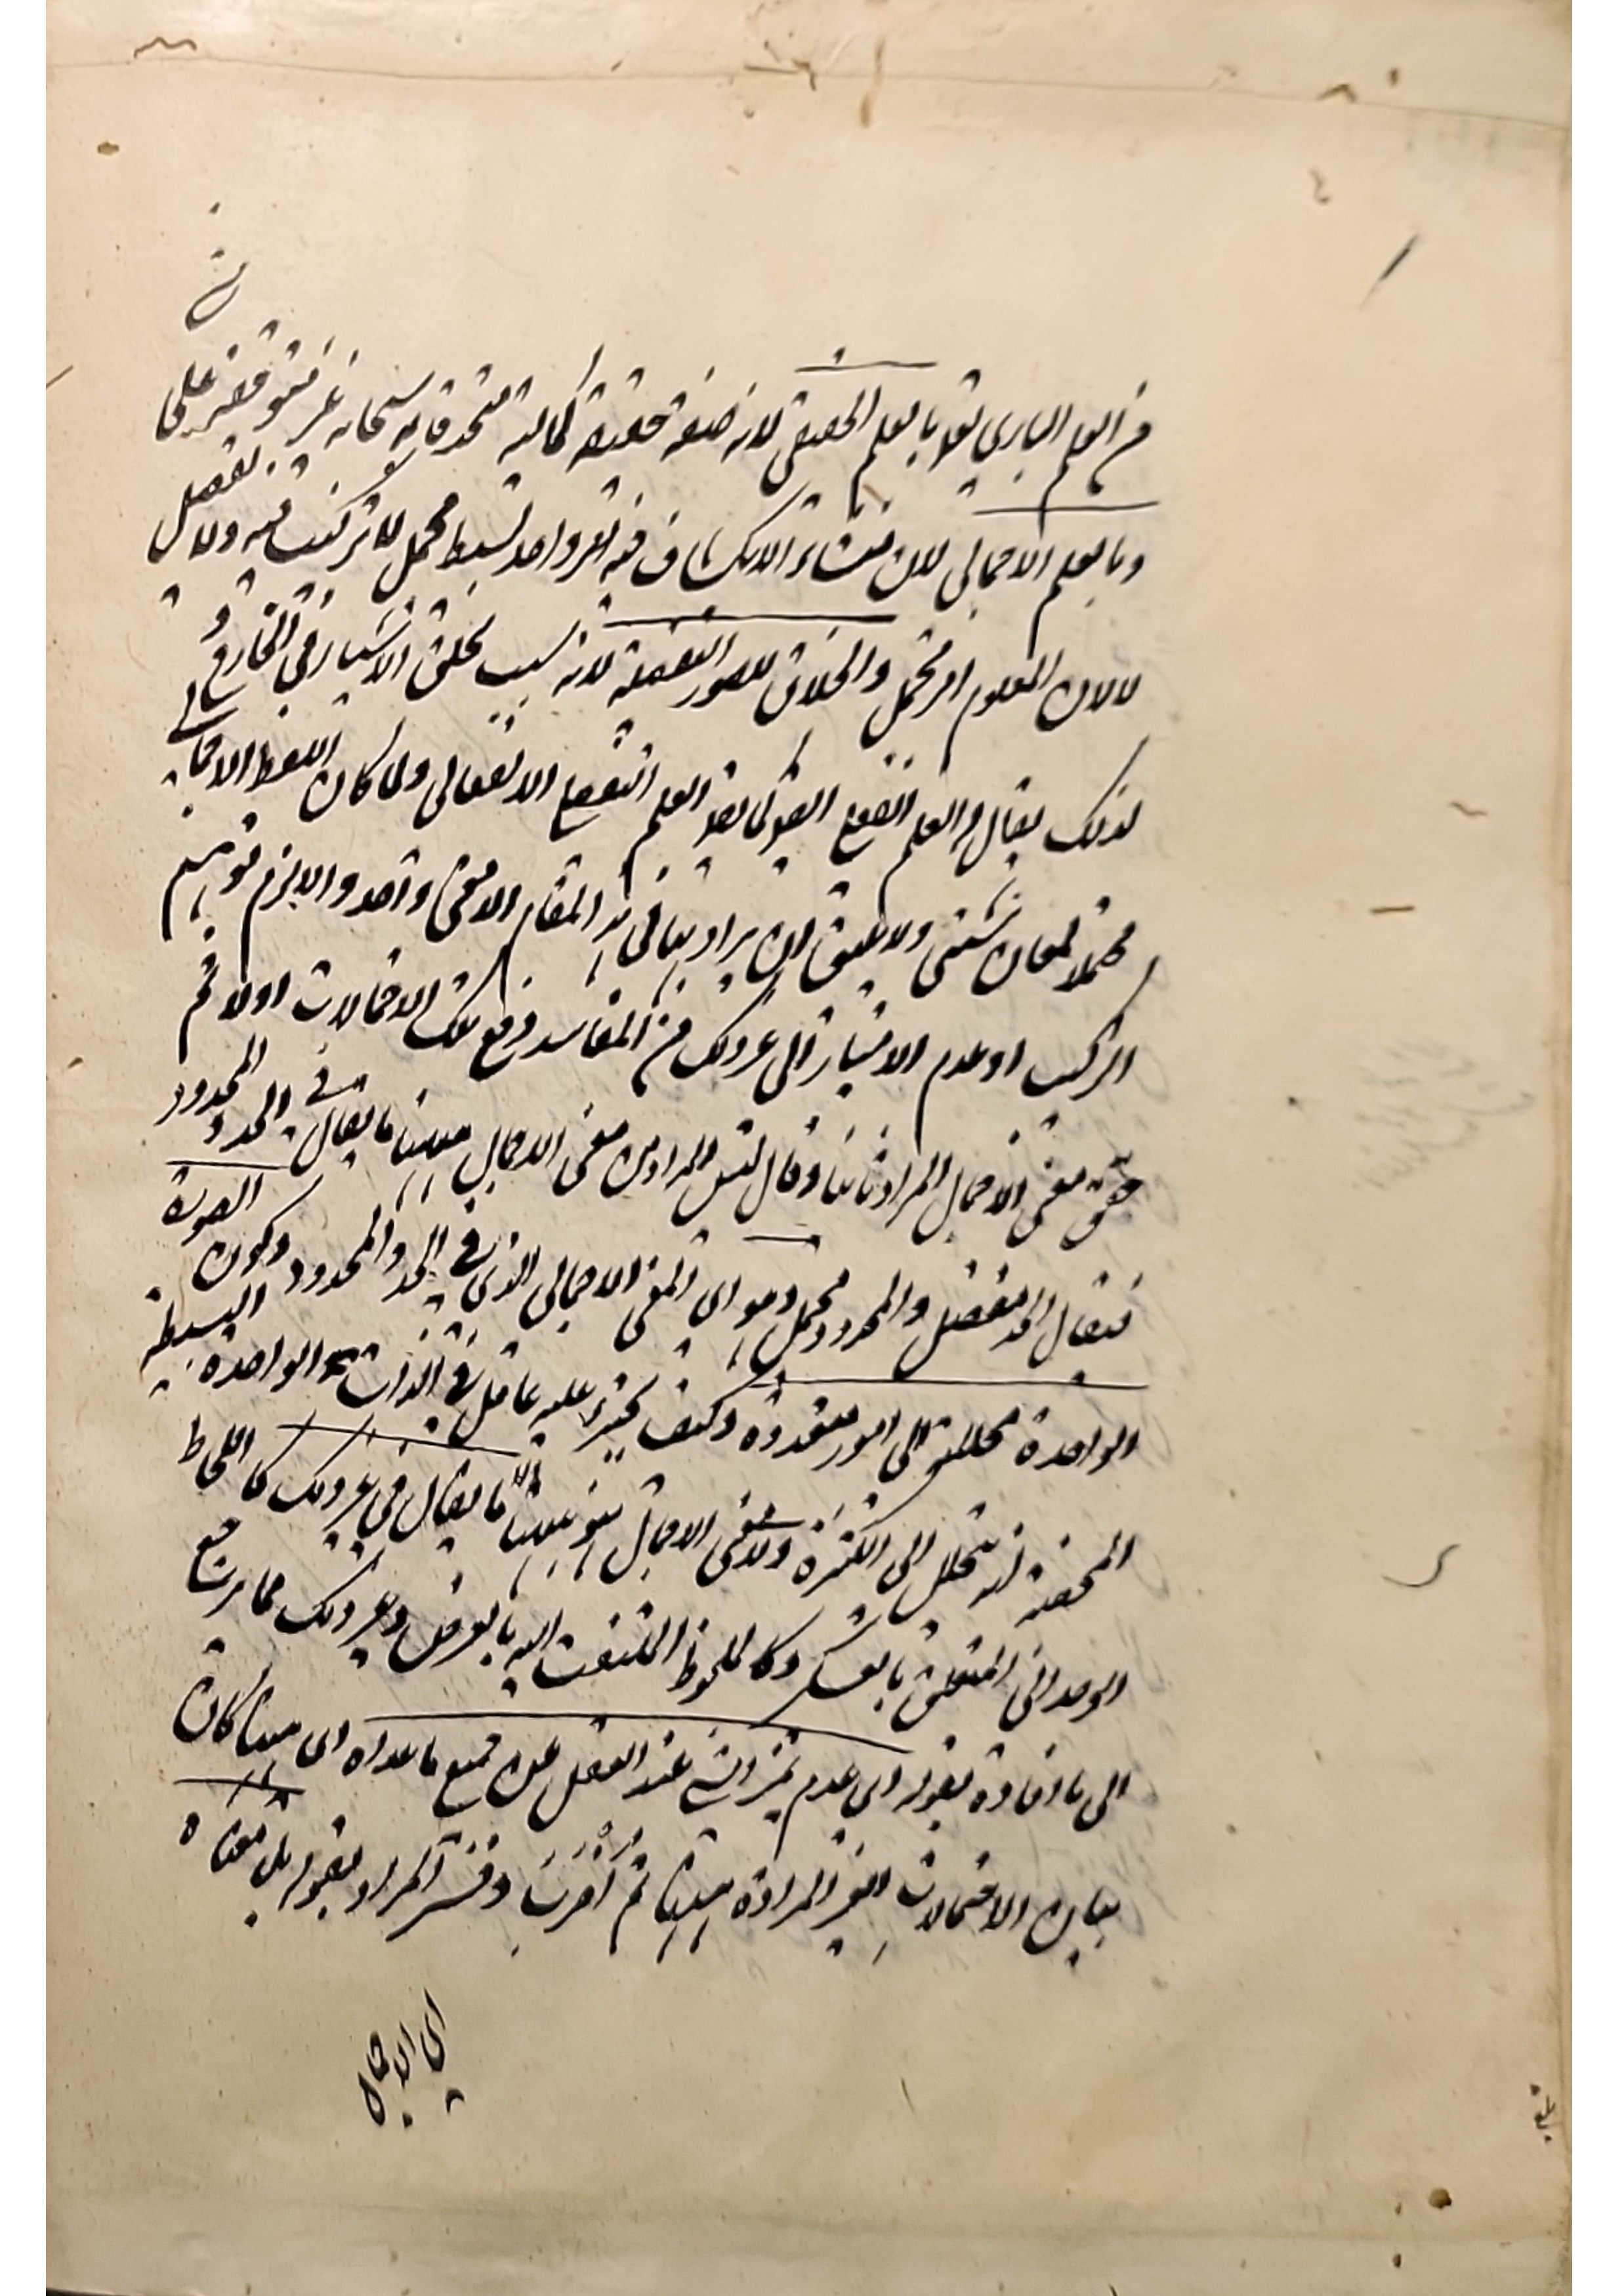 من العلم الباري تعالى بالعلم الحقيقي لانه صفة حقيقية كمالية متحدة به سبحانه غير متوقفة على
وبالعلم الاجمالي لان منشاء الانكشاف فيه امر واحد بسيط مجمل لا تركيب فيه ولا تفصيل
لا لان المعلوم امر مجمل والخلاق للصور التفصيلية لانه سبب لخلق الاشياء في الخارج و
لذلك يقال له العلم الفعلي كما يقال العلم التفصيلي الانفعالي ولما كان اللفظ الاجمالي
محتملا لمعان شتى ولا يليق ان يراد بها في هذا المقام الا معنى واحد والا لزم توهم
التركيب او عدم الامتياز الى غير ذلك من المفاسد دفع تلك الاحتمالات اولا ثم
حقق معنى الاجمال المراد ثانيا وقال ليس المراد من معنى الاجمال ههنا ما يقال في الحد والمحدود
فيقال الحد مفصل والمحدود مجمل وهو اي المعنى الاجمالي الذي في الحد والمحدود وكون الصورة
الواحدة محللة الى امور متعددة وكيف يجترئ عليه عاقل في الذات الواحدة البسيطة
المحضة انه يتحلل الى الكثرة ولا معنى الاجمال ههنا ما يقال في غير ذلك كاللحاظ
الوحداني المتعلق بالعسكر وكالملحوظ الملتفت اليه بالعرض وغير ذلك مما يرجع
الى ما افاده بقوله اي عدم تميز الشيء عند العقل عن جميع ما عداه اي ههنا كان
بيان الاحتمالات الغير المرادة ههنا ثم اضرب وفسر المراد بقوله بل معناه
اي الاجمال